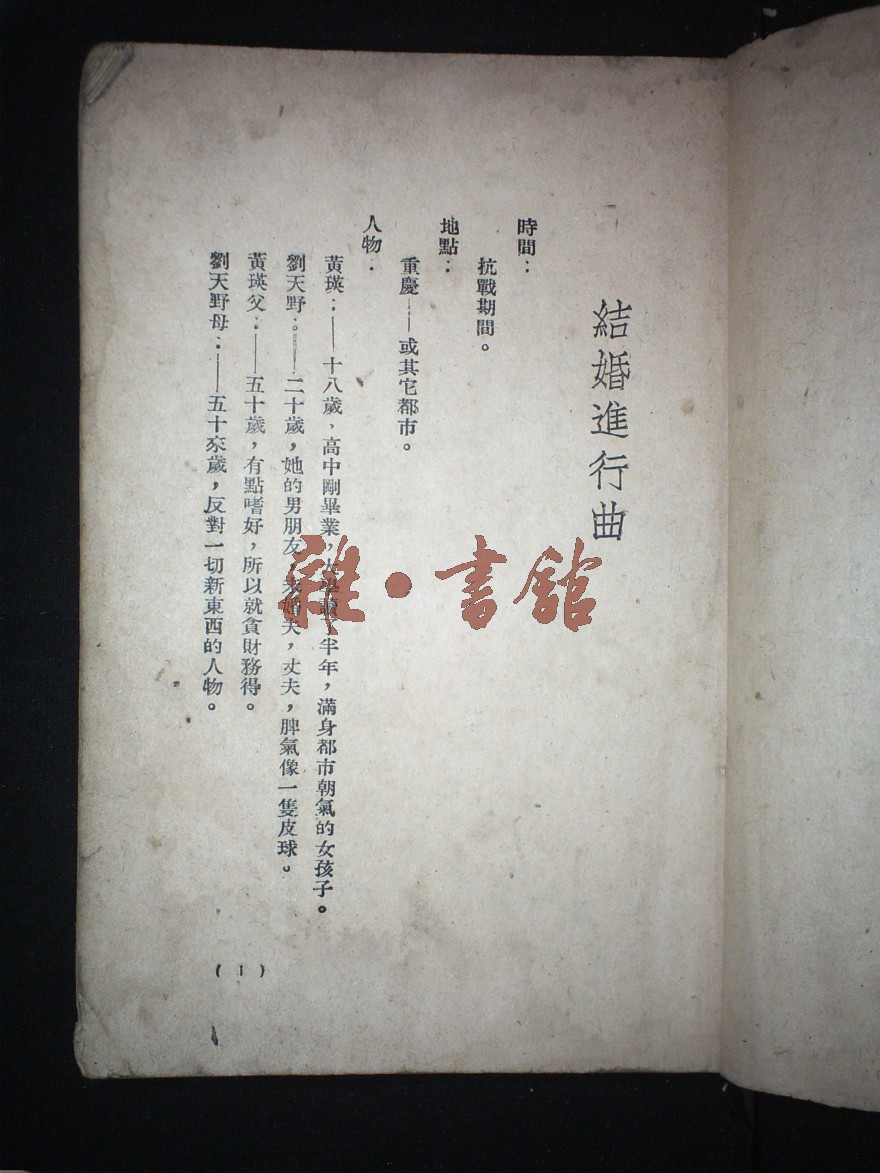 結婚進行曲
時間：
抗戰期間。
地點：
重慶——或其它都市。
人物：
黃瑛：——十八歲，高中剛畢業，大學讀了半年，滿身都市朝氣的女孩子。
劉天野：——二十歲，她的男朋友，未婚夫，丈夫，脾氣像一隻皮球。
黃瑛父：——五十歲，有點嗜好，所以就貪財務得。
劉天野母：——五十來歲，反對一切新東西的人物。
(1)
雜·書館